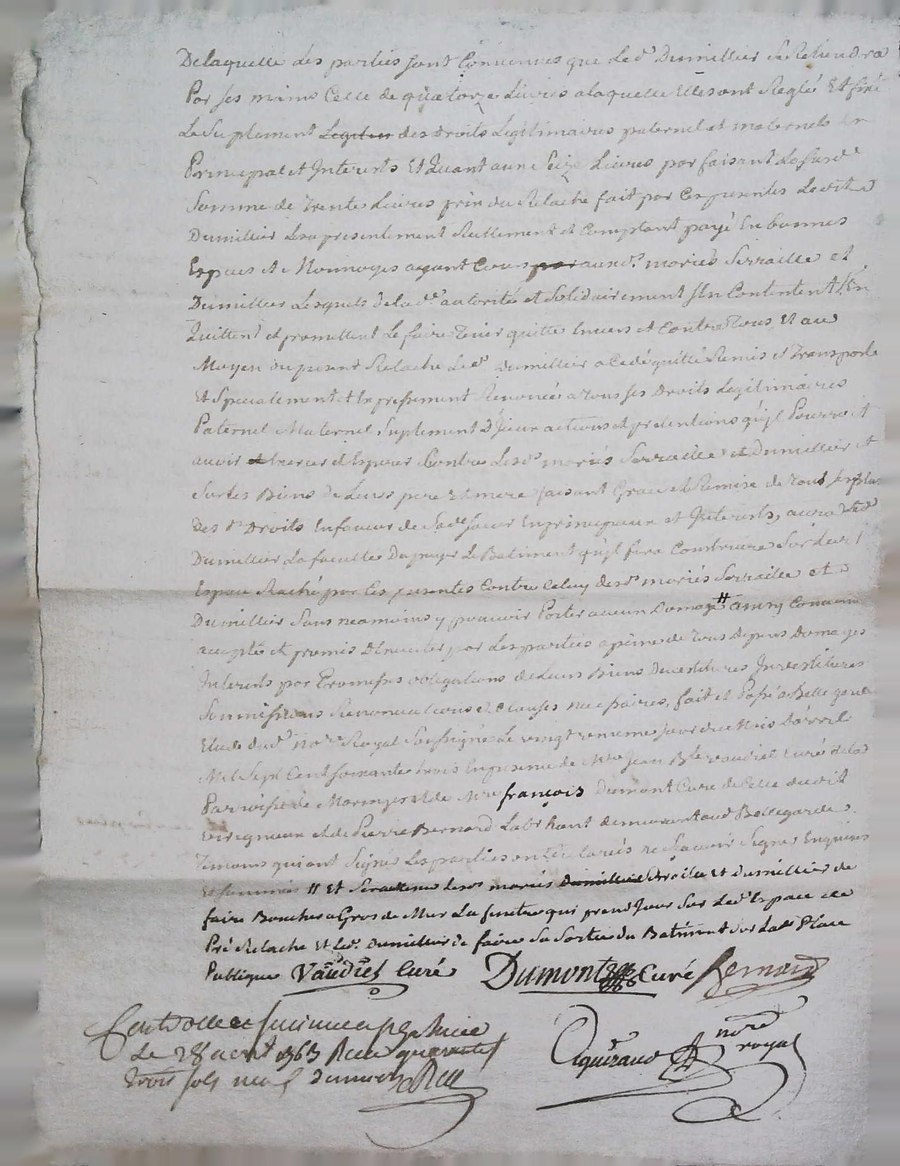 De laquelle des parties sont Convenues que Led. Dumillier se Retiendra
Par ses mains Celle de quatorze Livres a laquelle Elles ont Reglé Et fixé
Le Suplement des Droits Legitimaires paternel et maternels En
Principal et Interets Et Quant aux seize Livres por faisant La susd.
Somme de Trente Livres prix du Relache fait par Ces presentes Ledit
Dumillier Les a presentement Reellement et Comptant payé En bonnes
Especes et Monnoyes ayant Cours auxd. mariés Serraille et
Dumillier Lesquels de lad. autorité et Solidairement s'En Contentent L'En
Quittent et promettent Le faire Tenir quitte Envers et Contre Tous Et au
Moyen du present Relache Led. Dumillier a Cedé quitté Remis et Transporté
Et Specialement et Expressement Renoncé a Tous ses Droits Legitimaires
Paternel Maternel Suplement D'yceux actions et pretentions qu'yl Pourroit
avoir et Esperer Contre Lesd. mariés Serraille et Dumillier et
Sur les Biens de Leurs pere et mere faisant Grace et Remise de Tous
Des d. Droits En faveur de Sad. Soeur En principaux et Interets, aura Led.
Dumillier La faculté D'apuyer Le Batiment qu'yl fera Construire Sur
Espace Relaché par Ces presentes Contre Celuy desd. mariés Serraille et
Dumillier Sans neamoins y pouvoir Porter aucun Domage # ainsy Convenu
accepté et promis D'Executer par Les parties a peine de Tous Depens Domages
Interets par Promesses obligations de Leurs Biens Devestitures Investitures
Soumissions Renonciations et Clauses necessaires, fait et Passé a Bellegarde
Etude dud. no.re Royal Soussigné Le vingt uneme jour du Mois D'avril
Mil Sept Cent soixante trois En presence de M.re Jean B.te vaudiet Curé de la
Parroisse de Maringes et de M.re françois Dumont Curé de Celle dudit
Virigneux et de Pierre Bernard Lab. habitant demeurant aud. Bellegarde
Temoins qui ont Signé Les parties ont declarés ne Sçavoir Signer Enquises
et Sommées # Et seront Lesd. mariés Droille et Dumillier de
faire Boucher a Gros de Mur La fenetre qui prend Jour Sur Led. Espace de
Pré Relaché Et Led. Dumillier de faire Sa Sortie du Batiment Sur Lad. Place
Publique Vaudiet Curé Dumont Curé Bernard
Controllé et insinué
Le 28 avril 1763 Recu quarante
trois sols neuf deniers
Aguiraud no.re royal